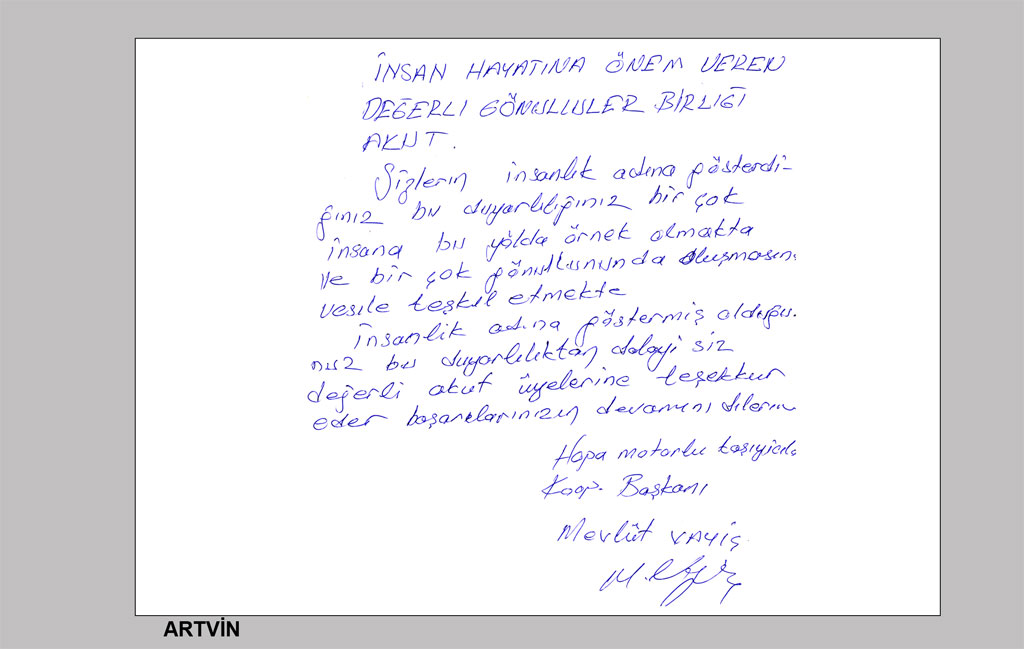 İNSAN HAYATINA ÖNEM VEREN
DEĞERLİ GÖNÜLLÜLER BİRLİĞİ
AKUT.
Sizlerin insanlık adına gösterdi-
ğiniz bu duyarlılığınız bir çok
insana bu yolda örnek olmakta
ve bir çok gönüllününda oluşmasın
vesile teşkil etmekte
insanlik adına göstermiş olduğu.
nuz bu duyarlılıktan dolayi siz
değerli akut üyelerine teşekkür
eder başarılarınızın devamını dilerim
Hopa motorlu taşıyicıl.
Koop. Başkanı
Mevlüt VAYİÇ
ARTVİN